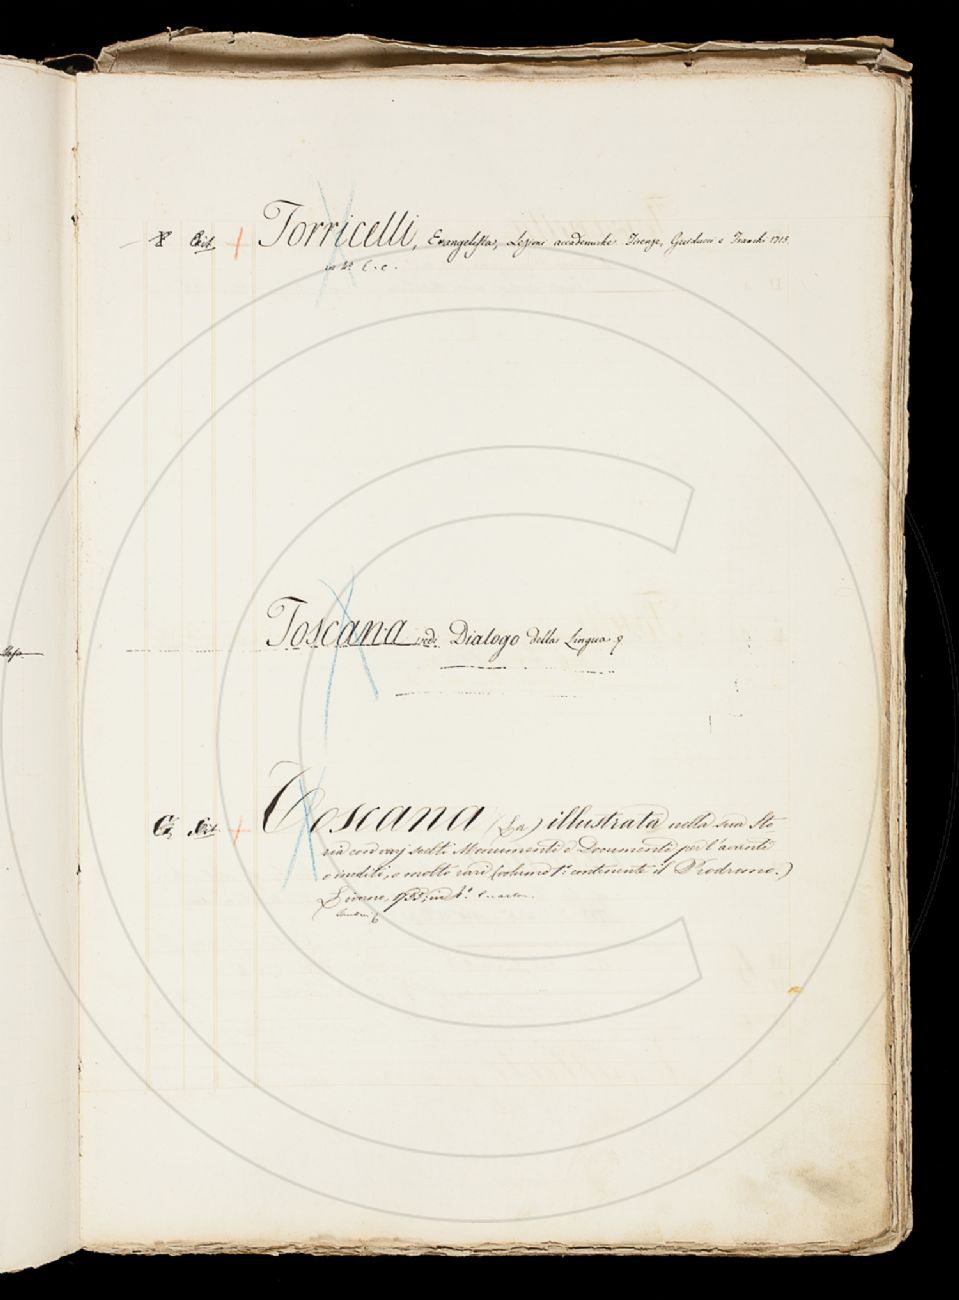 Torricelli, Evangelista, Lezioni accademiche. Firenze, Guiducci e Franchi 1715.
in 4º C. c.
Toscana vedi Dialogo della Lingua
Toscana (La) illustrata nella sua Sto
ria con varj scelti Monumenti e Documenti per l'avanti
o inediti, o molto rari (volume 1º: contenente il Prodromo.)
Livorno, 1755, in 4º.